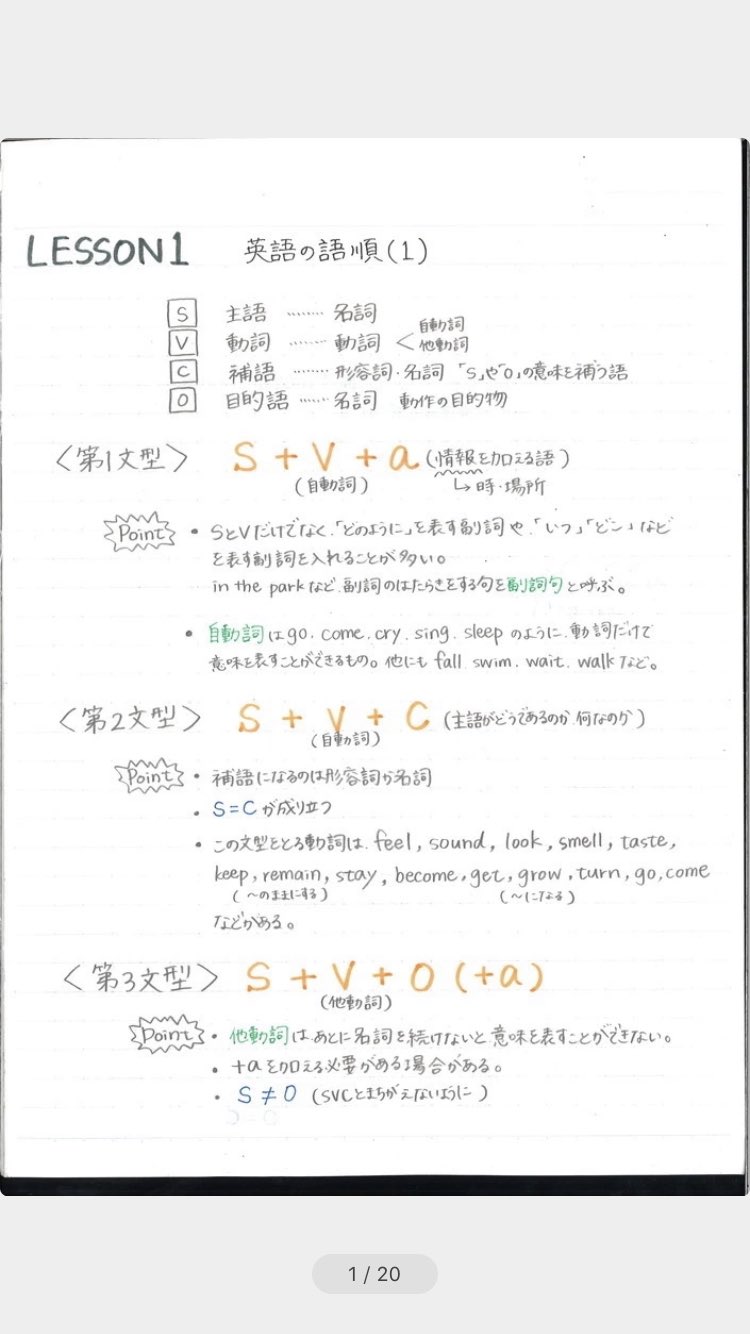 LESSON1 英語の語順(1)
S 主語 ……… 名詞
V 動詞 ……… 動詞 < 自動詞
他動詞
C 補語 ……… 形容詞・名詞 「S」や「O」の意味を補う語
O 目的語 …… 名詞 動作の目的物
〈第1文型〉 S + V + a (情報を加える語)
(自動詞) ↳ 時・場所
Point • SとVだけでなく、「どのように」を表す副詞や、「いつ」「どこ」など
を表す副詞を入れることが多い。
in the parkなど、副詞のはたらきをする句を副詞句と呼ぶ。
• 自動詞はgo. come. cry. sing. sleep のように、動詞だけで
意味を表すことができるもの。他にも fall. swim. wait. walk など。
〈第2文型〉 S + V + C (主語がどうであるのか、何なのか)
(自動詞)
Point • 補語になるのは形容詞か名詞
• S=C が成り立つ
• この文型をとる動詞は、feel, sound, look, smell, taste,
keep, remain, stay, become, get, grow, turn, go, come
(〜のままにする) (〜になる)
などがある。
〈第3文型〉 S + V + O (+a)
(他動詞)
Point • 他動詞は、あとに名詞を続けないと意味を表すことができない。
• +aを加える必要がある場合がある。
• S ≠ O (SVCとまちがえないように)
1 / 20